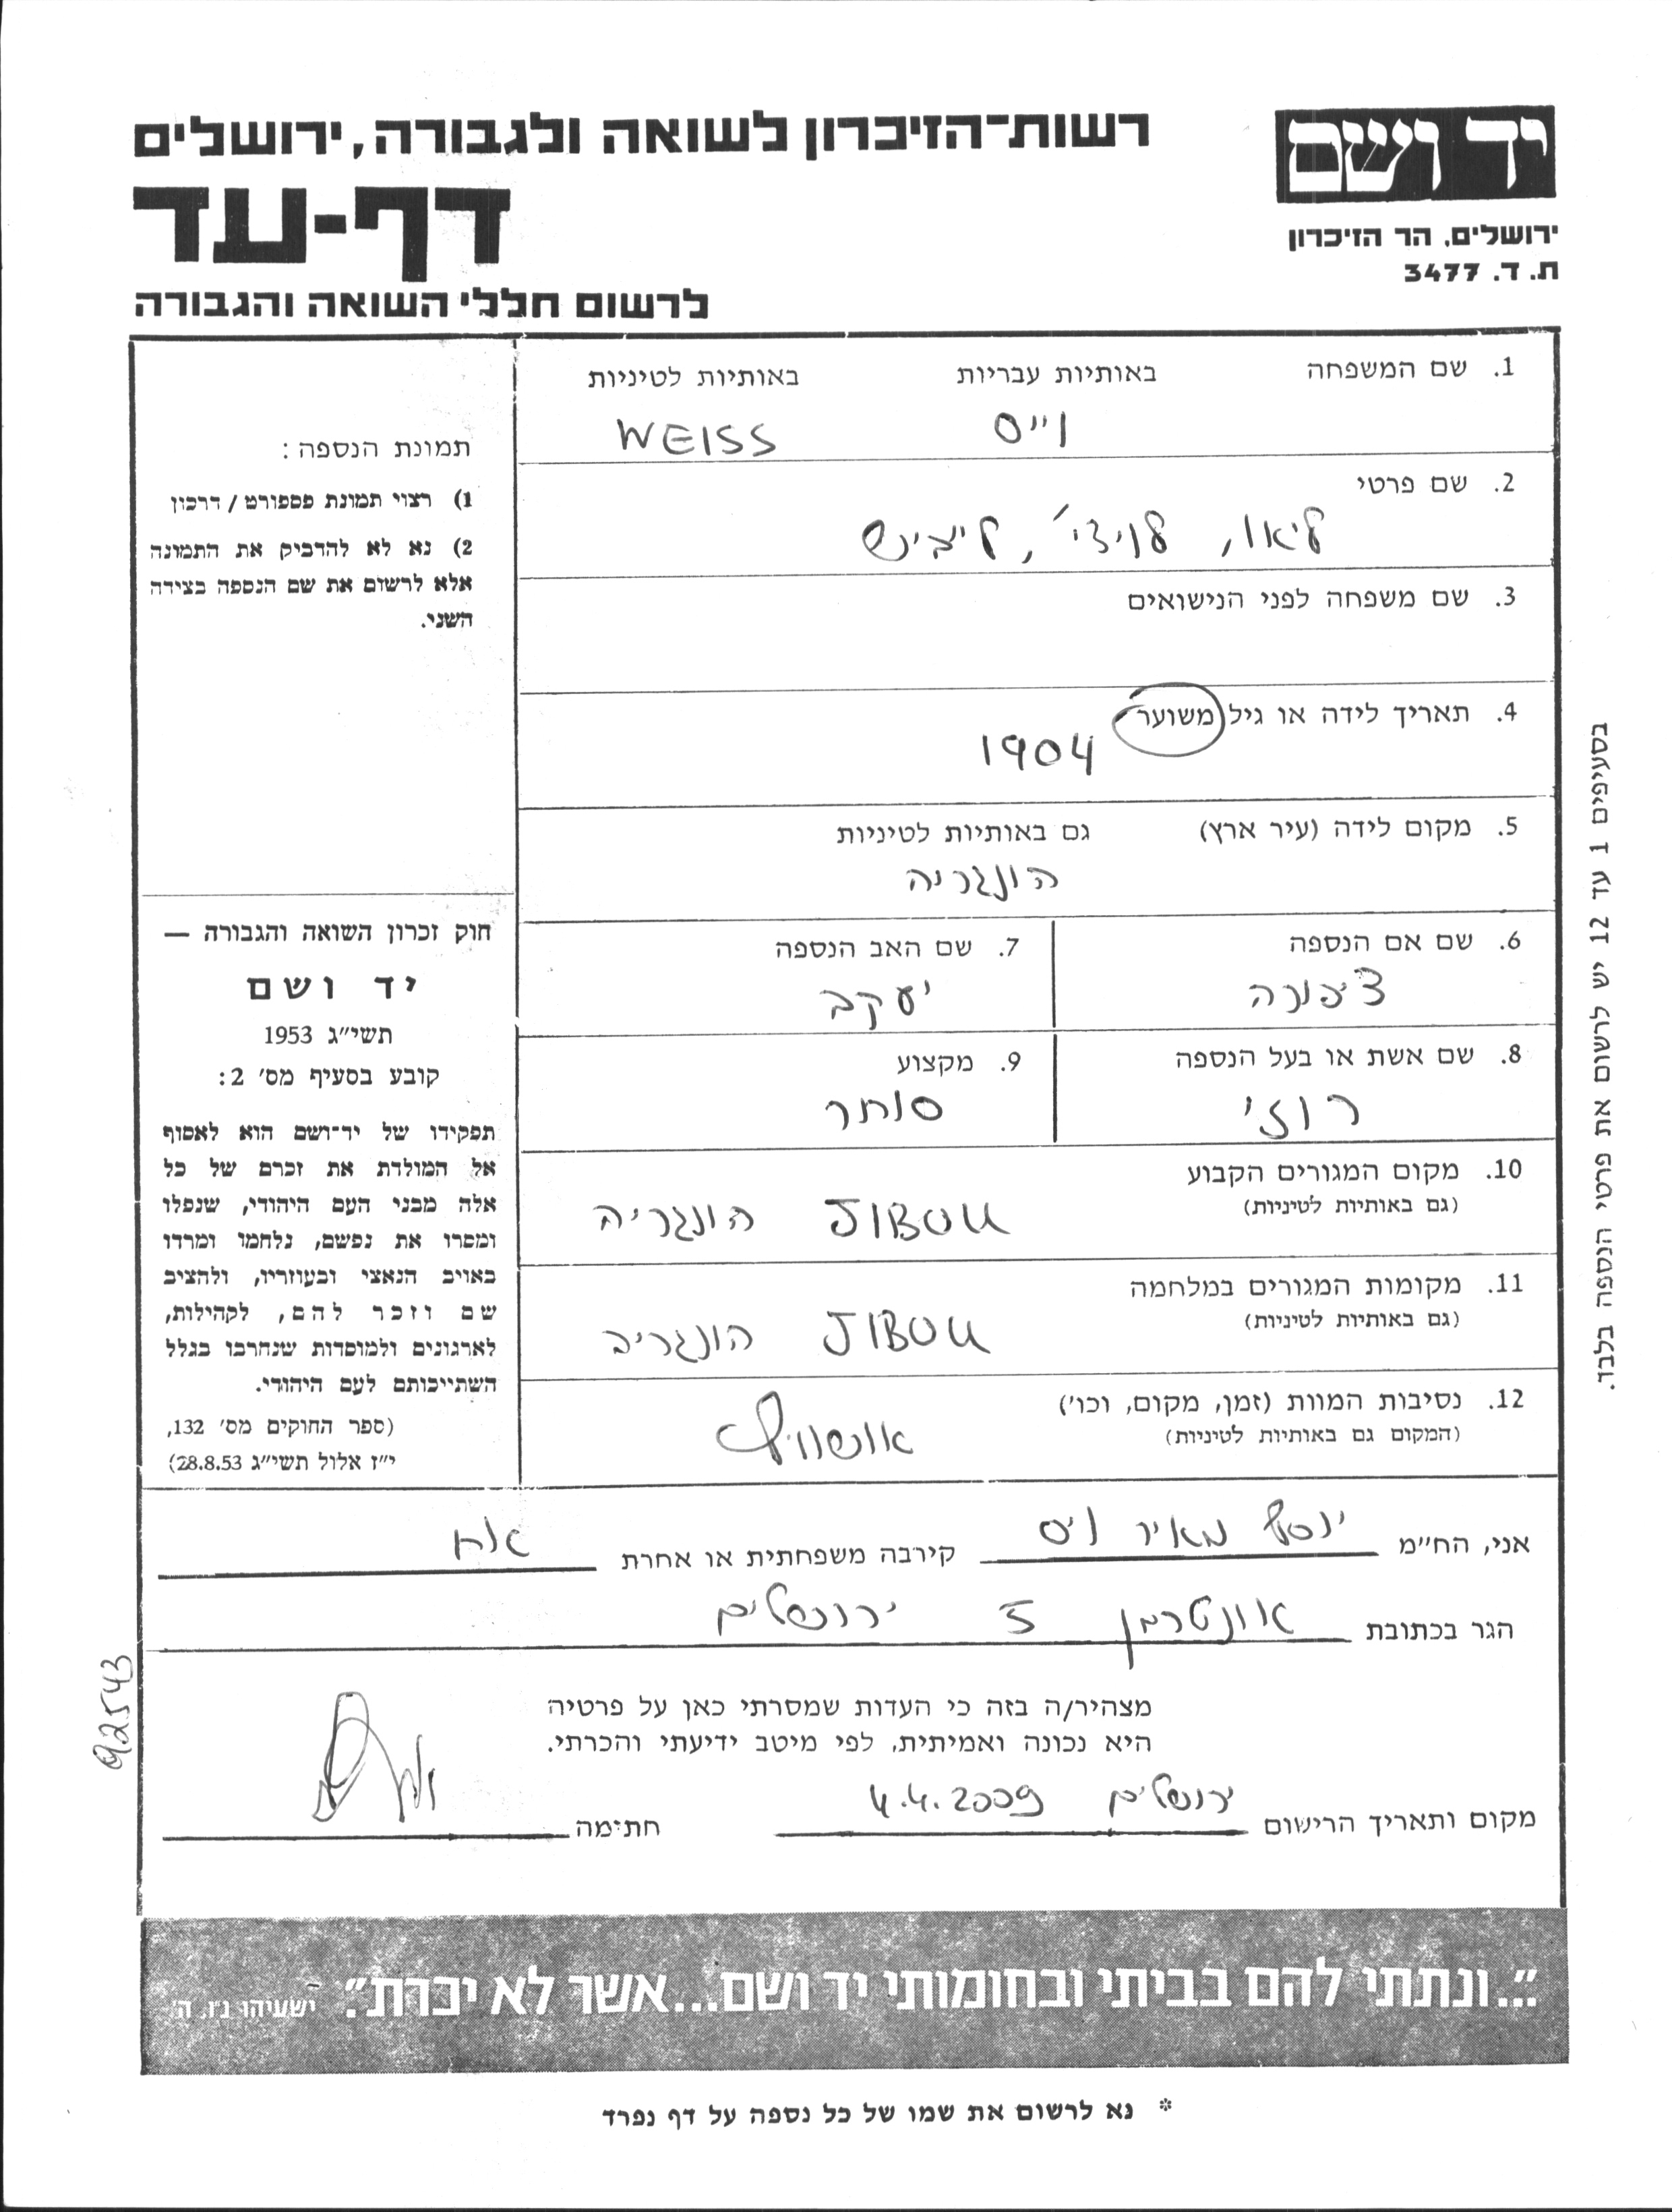 רשות-הזיכרון לשואה ולגבורה, ירושלים
יד ושם
דף-עד
ירושלים, הר הזיכרון
ת. ד. 3477
לרשום חללי השואה והגבורה
1. שם המשפחה באותיות עבריות באותיות לטיניות
וייס WEISS
2. שם פרטי
ליאו, לויזי,
3. שם משפחה לפני הנישואים
4. תאריך לידה או גיל משוער
1904
5. מקום לידה (עיר ארץ) גם באותיות לטיניות
הונגריה
6. שם אם הנספה
ציפורה
7. שם האב הנספה
יעקב
8. שם אשת או בעל הנספה
רוזי
9. מקצוע
סוחר
10. מקום המגורים הקבוע
(גם באותיות לטיניות)
JIBOU הונגריה
11. מקומות המגורים במלחמה
(גם באותיות לטיניות)
JIBOU הונגריה
12. נסיבות המוות (זמן, מקום, וכו')
(המקום גם באותיות לטיניות)
אושוויץ
תמונת הנספה:
1) רצוי תמונת פספורט/דרכון
2) נא לא להדביק את התמונה
אלא לרשום את שם הנספה בצידה
השני.
חוק זכרון השואה והגבורה —
יד ושם
תשי"ג 1953
קובע בסעיף מס' 2:
תפקידו של יד-ושם הוא לאסוף
אל המולדת את זכרם של כל
אלה מבני העם היהודי, שנפלו
ומסרו את נפשם, נלחמו ומרדו
באויב הנאצי ובעוזריו, ולהציב
שם וזכר להם, לקהילות,
לארגונים ולמוסדות שנחרבו בגלל
השתייכותם לעם היהודי.
(ספר החוקים מס' 132,
י"ז אלול תשי"ג 28.8.53)
בסעיפים 1 עד 12 יש לרשום את פרטי הנספה בלבד.
אני, הח"מ יוסף מאיר ויס קירבה משפחתית או אחרת אח
הגר בכתובת אונטרמן 5 ירושלים
מצהיר/ה בזה כי העדות שמסרתי כאן על פרטיה
היא נכונה ואמיתית, לפי מיטב ידיעתי והכרתי.
מקום ותאריך הרישום ירושלים 4.4.2009 חתימה
92543
"...ונתתי להם בביתי ובחומותי יד ושם...אשר לא יכרת". ישעיהו נ"ו, ה'
* נא לרשום את שמו של כל נספה על דף נפרד